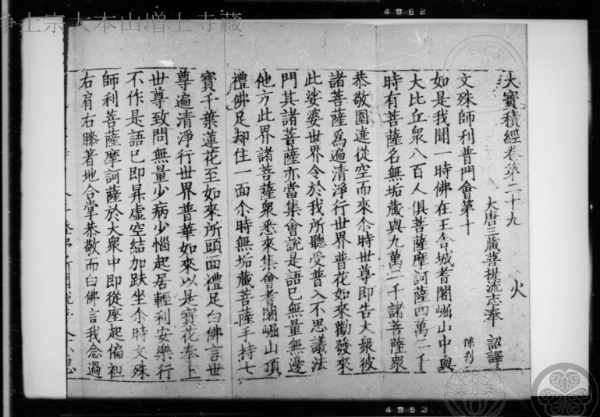 4952
浄土宗大本山増上寺蔵
大寳積經卷第二十九
火
大唐三藏菩提流志奉 詔譯
文殊師利普門會第十
如是我聞一時佛在王舍城耆闍崛山中與
大比丘衆八百人俱菩薩摩訶薩四萬二千
時有菩薩名無垢藏與九萬二千諸菩薩衆
恭敬圍遶從空而來尒時世尊即告大衆彼
諸菩薩為遍清淨行世界普花如來勸發來
此娑婆世界令於我所聽受普入不思議法
門其諸菩薩亦當集會說是語已無量無邊
他方此界諸菩薩衆悉來集會耆闍崛山頂
禮佛足却住一面尒時無垢藏菩薩手持七
寳千葉蓮花至如來所頭面禮足白佛言世
尊遍清淨行世界普華如來以是寳花奉上
世尊致問無量少病少惱起居輕利安樂行
不作是語已即昇虛空結加趺坐尒時文殊
師利菩薩摩訶薩於大衆中即從座起偏袒
右肩右膝著地合掌恭敬而白佛言我念過
4953